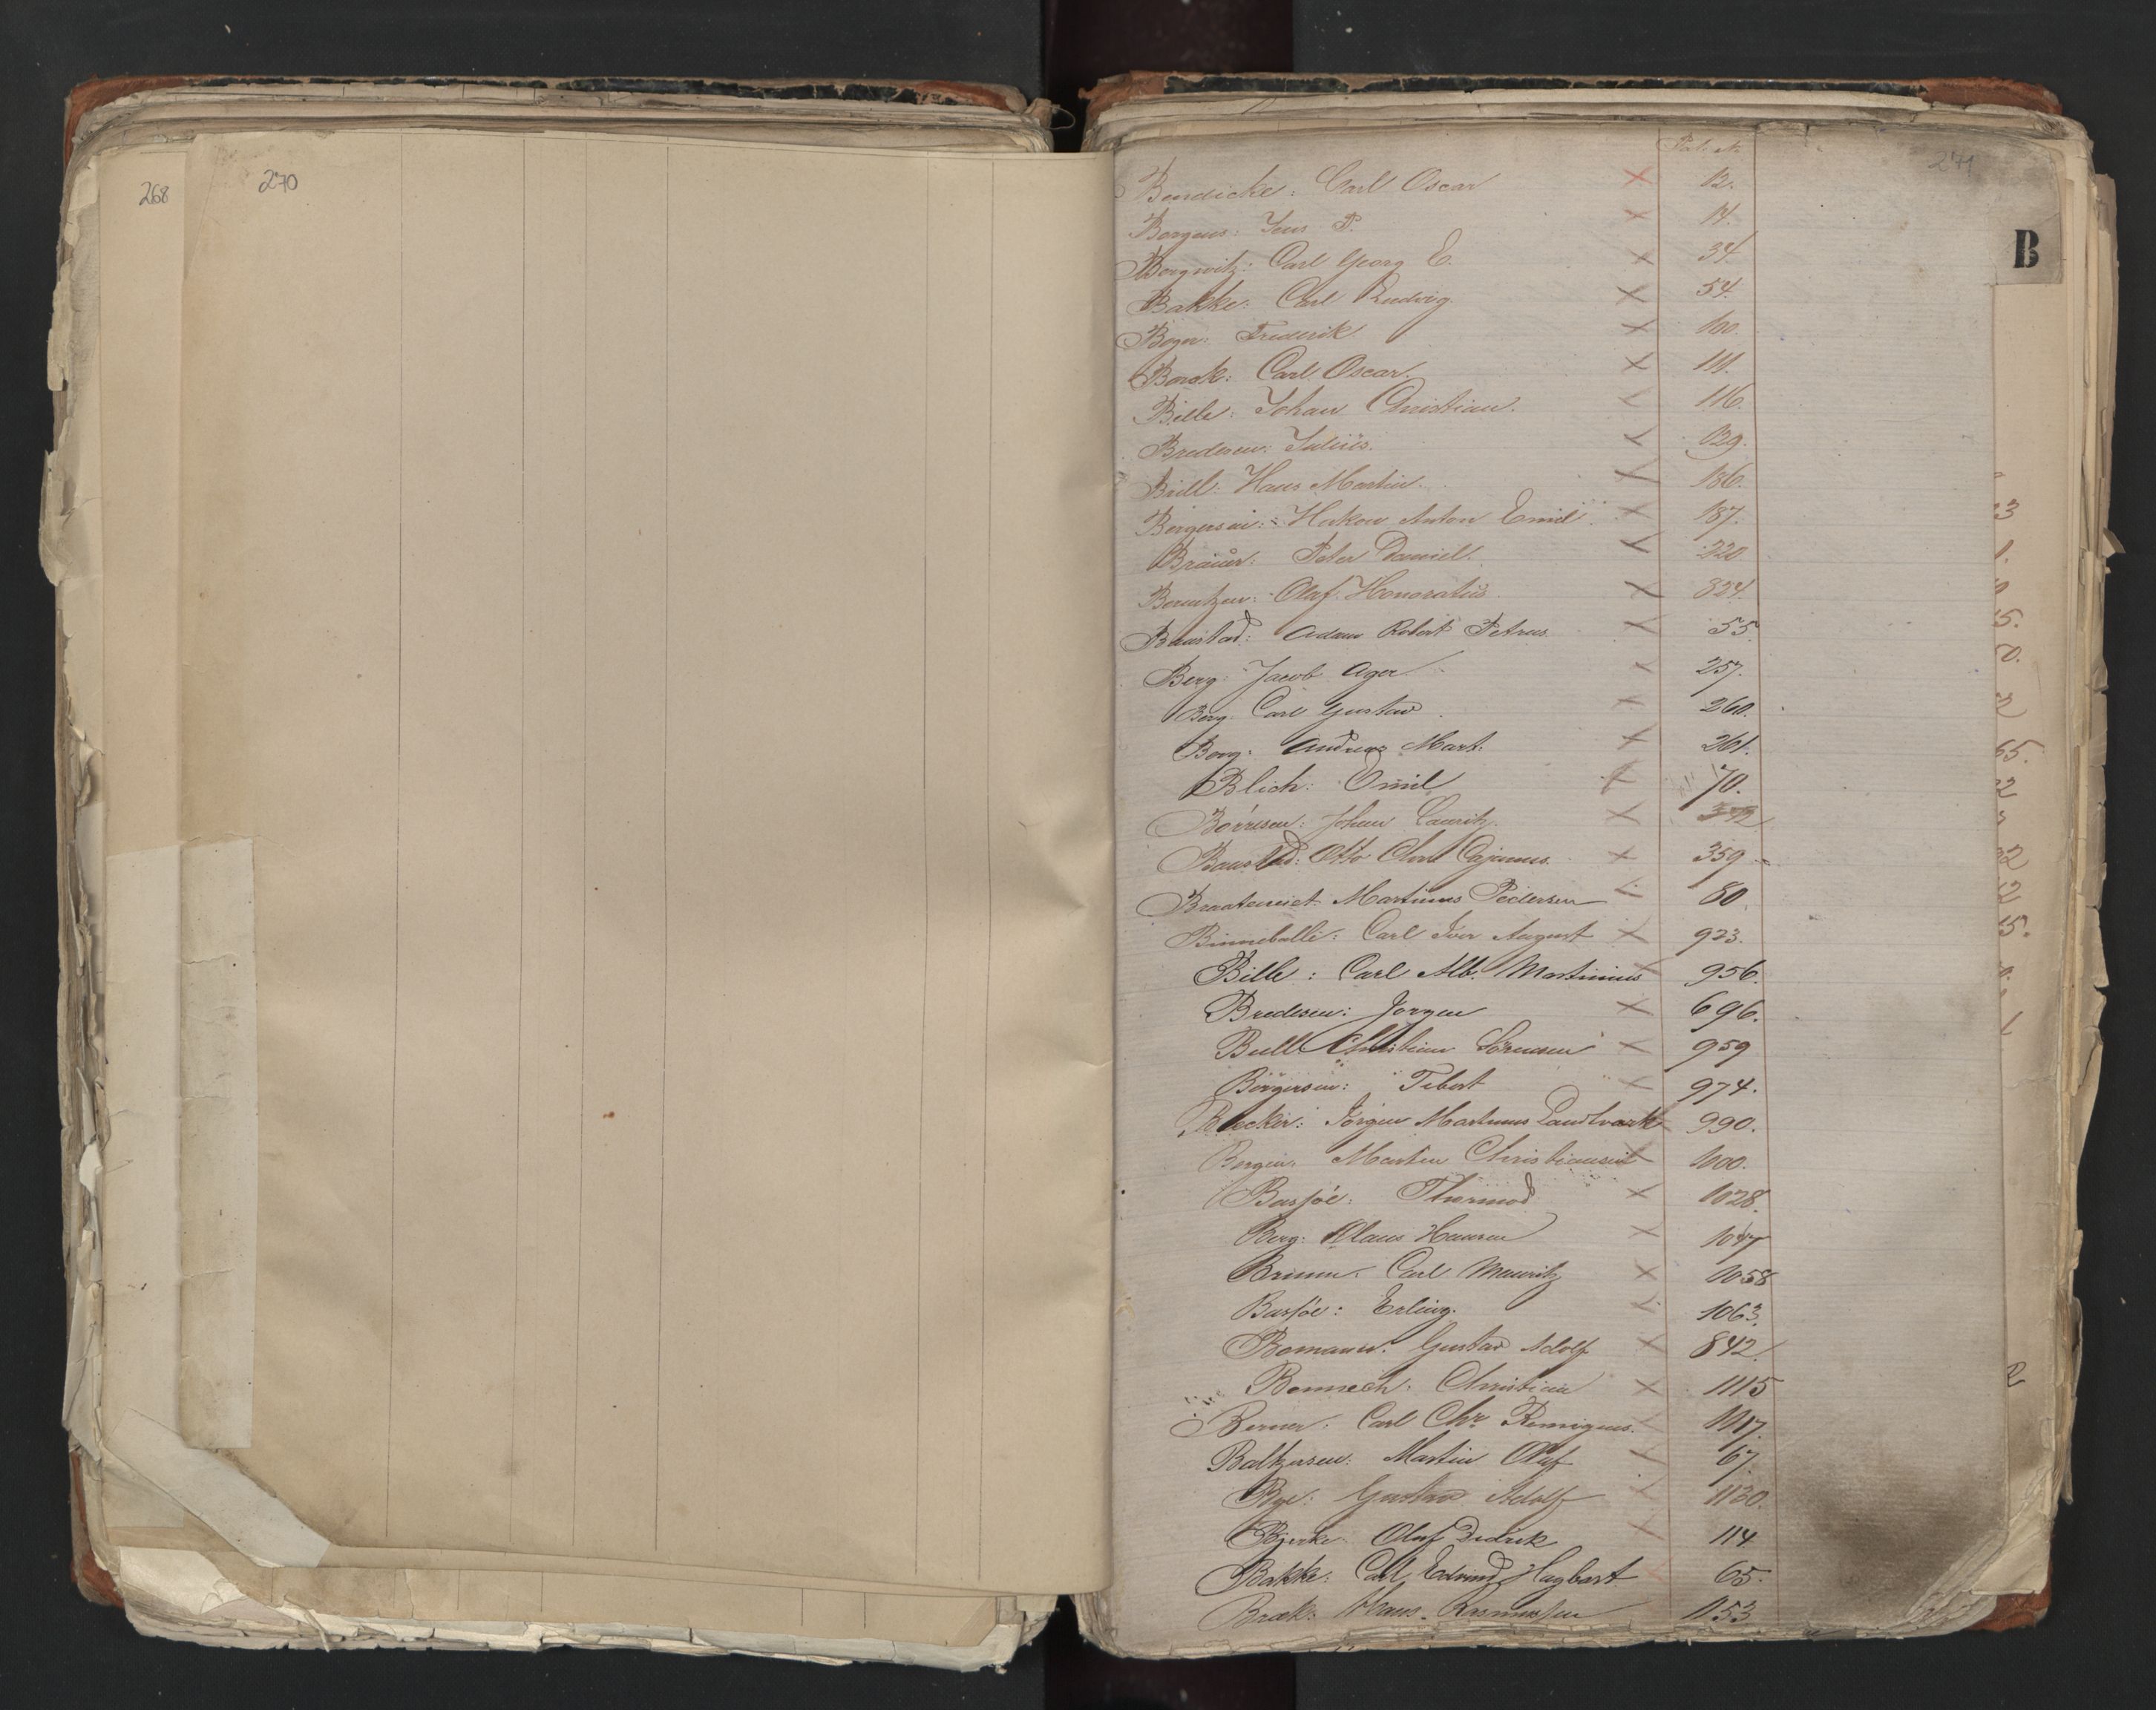 268
270
271
B
Pat. №
Bendicke: Carl Oscar × 12.
Borgens: Jens P. × 14.
Borgwitz: Carl Georg E. × 34
Bakke: Carl Ludvig × 54.
Boger: Frederik × 100.
Borck: Carl Oscar. × 111.
Bille: Johan Christian. × 116.
Bredesen: Julius. × 129.
Brill: Hans Martin. × 186.
Borgersen: Hakon Anton Emil × 187.
Bräuer: Peter Daniel. × 220
Berntzen: Olaf Honoratus. × 824.
Baustad: Adam Robert Petrus × 55.
Berg: Jacob Ager × 257.
Berg: Carl Gustav × 260.
Berg: Andreas Mart. × 261.
Blich: Emil × 70.
Börresen: Johan Lauritz. × 372
Baustad: Otto Chr Cajanus × 359
Braatenviet: Martinus Pedersen × 80.
Binneballe: Carl Iver August × 923.
Bille: Carl Alb. Martinius × 956.
Bredesen: Jorgen × 696.
Bull: Christian Sörensen × 959
Börgersen: Tebert × 974.
Becker: Jörgen Martinus Landtvark × 990.
Bergen: Martin Christiansen × 1000.
Basjöe: Thormod × 1028.
Berg: Klaus Hansen × 1047
Bruun: Carl Mauritz × 1058
Basjöe: Erling. × 1063.
Bomann: Gustav Adolf × 842.
Bennech: Christian × 1115
Berner: Carl Chr. Remigius. × 1117.
Baltzersen: Martin Olaf × 67.
Bye: Gustav Adolf × 1130.
Bjerke: Olaf Didrik × 114
Bakke: Carl Edvind Hagbart × 65.
Bræk: Hans Rasmussen 1153